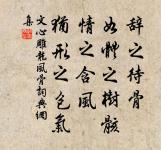 辭之待骨
如體之樹骸
情之含風
猶形之包氣
文心雕龍風骨詞典網
集